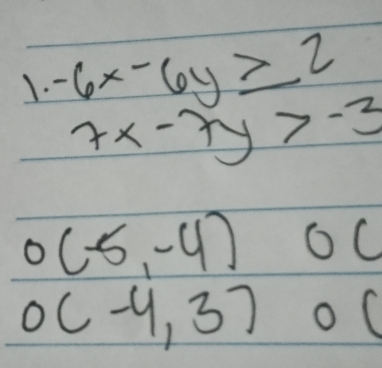 1. -6x - 6y ≥ 2
7x - 7y > -3
O (-5, -4) O (
O (-4, 3) O (